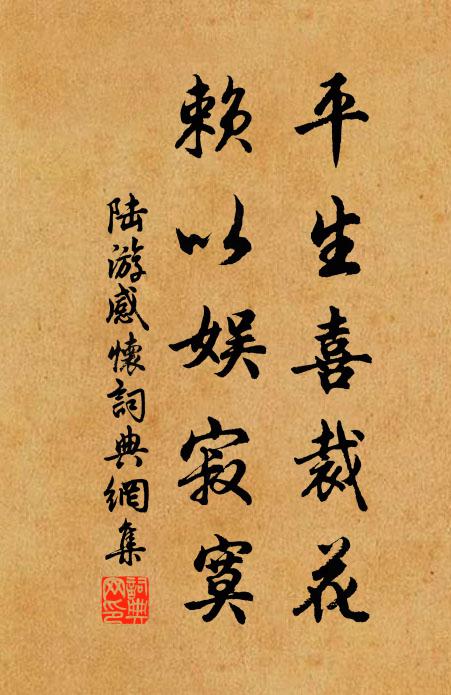 平生喜裁花
賴以娱寂寞
陆游感懷詞典網集
詞典
网印